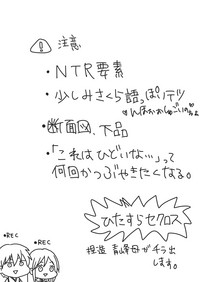 ! 注意
・NTR要素
・少しみさくら語っぽいテツ
んほぉぉおしゅごいのぉ
・断面図、下品
・「これはひどいな…」って
何回かつぶやきたくなる。
ひたすらセクロス
捏造 青峰母がチラ出
します。
•REC
•REC